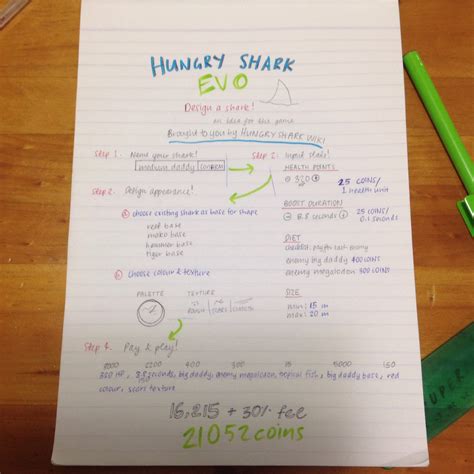 HUNGRY SHARK
EVO
Design a shark!
an idea for the game
Brought to you by HUNGRY SHARK WIKI
Step 1. Name your shark!
modium daddy confirm
Step 2. Design appearance!
choose existing shark as base for shape
reef base
mako base
hammer base
tiger base
choose colour & texture
PALETTE TEXTURE
ROUGH SCARS
Step 3. Input stats!
HEALTH POINTS
320 25 COINS/
1 health unit
BOOST DURATION
8.8 seconds 25 COINS/
0.1 seconds
DIET
enemy big daddy 400 COINS
enemy megalodon 300 COINS
SIZE
min: 15 m
max: 20 m
Step 4. Pay & play!
2200 400 300 15 5000 150
320 HP, 8.8 seconds, big daddy, enemy megalodon, tropical fish, big daddy base, red
colour, scars texture
16,215 + 30% fee
21052 coins
SUPER